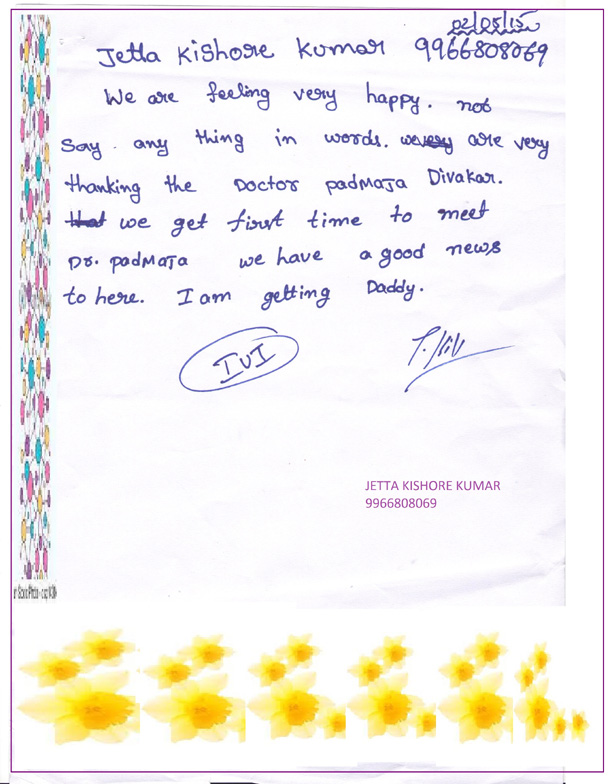 02/05/15
Jetta Kishore Kumar 9966808069
We are feeling very happy. not
Say. any thing in words. are very
thanking the Doctor padmaja Divakar.
we get first time to meet
Dr. padmaja we have a good news
to here. I am getting Daddy.
IUI
JETTA KISHORE KUMAR
9966808069